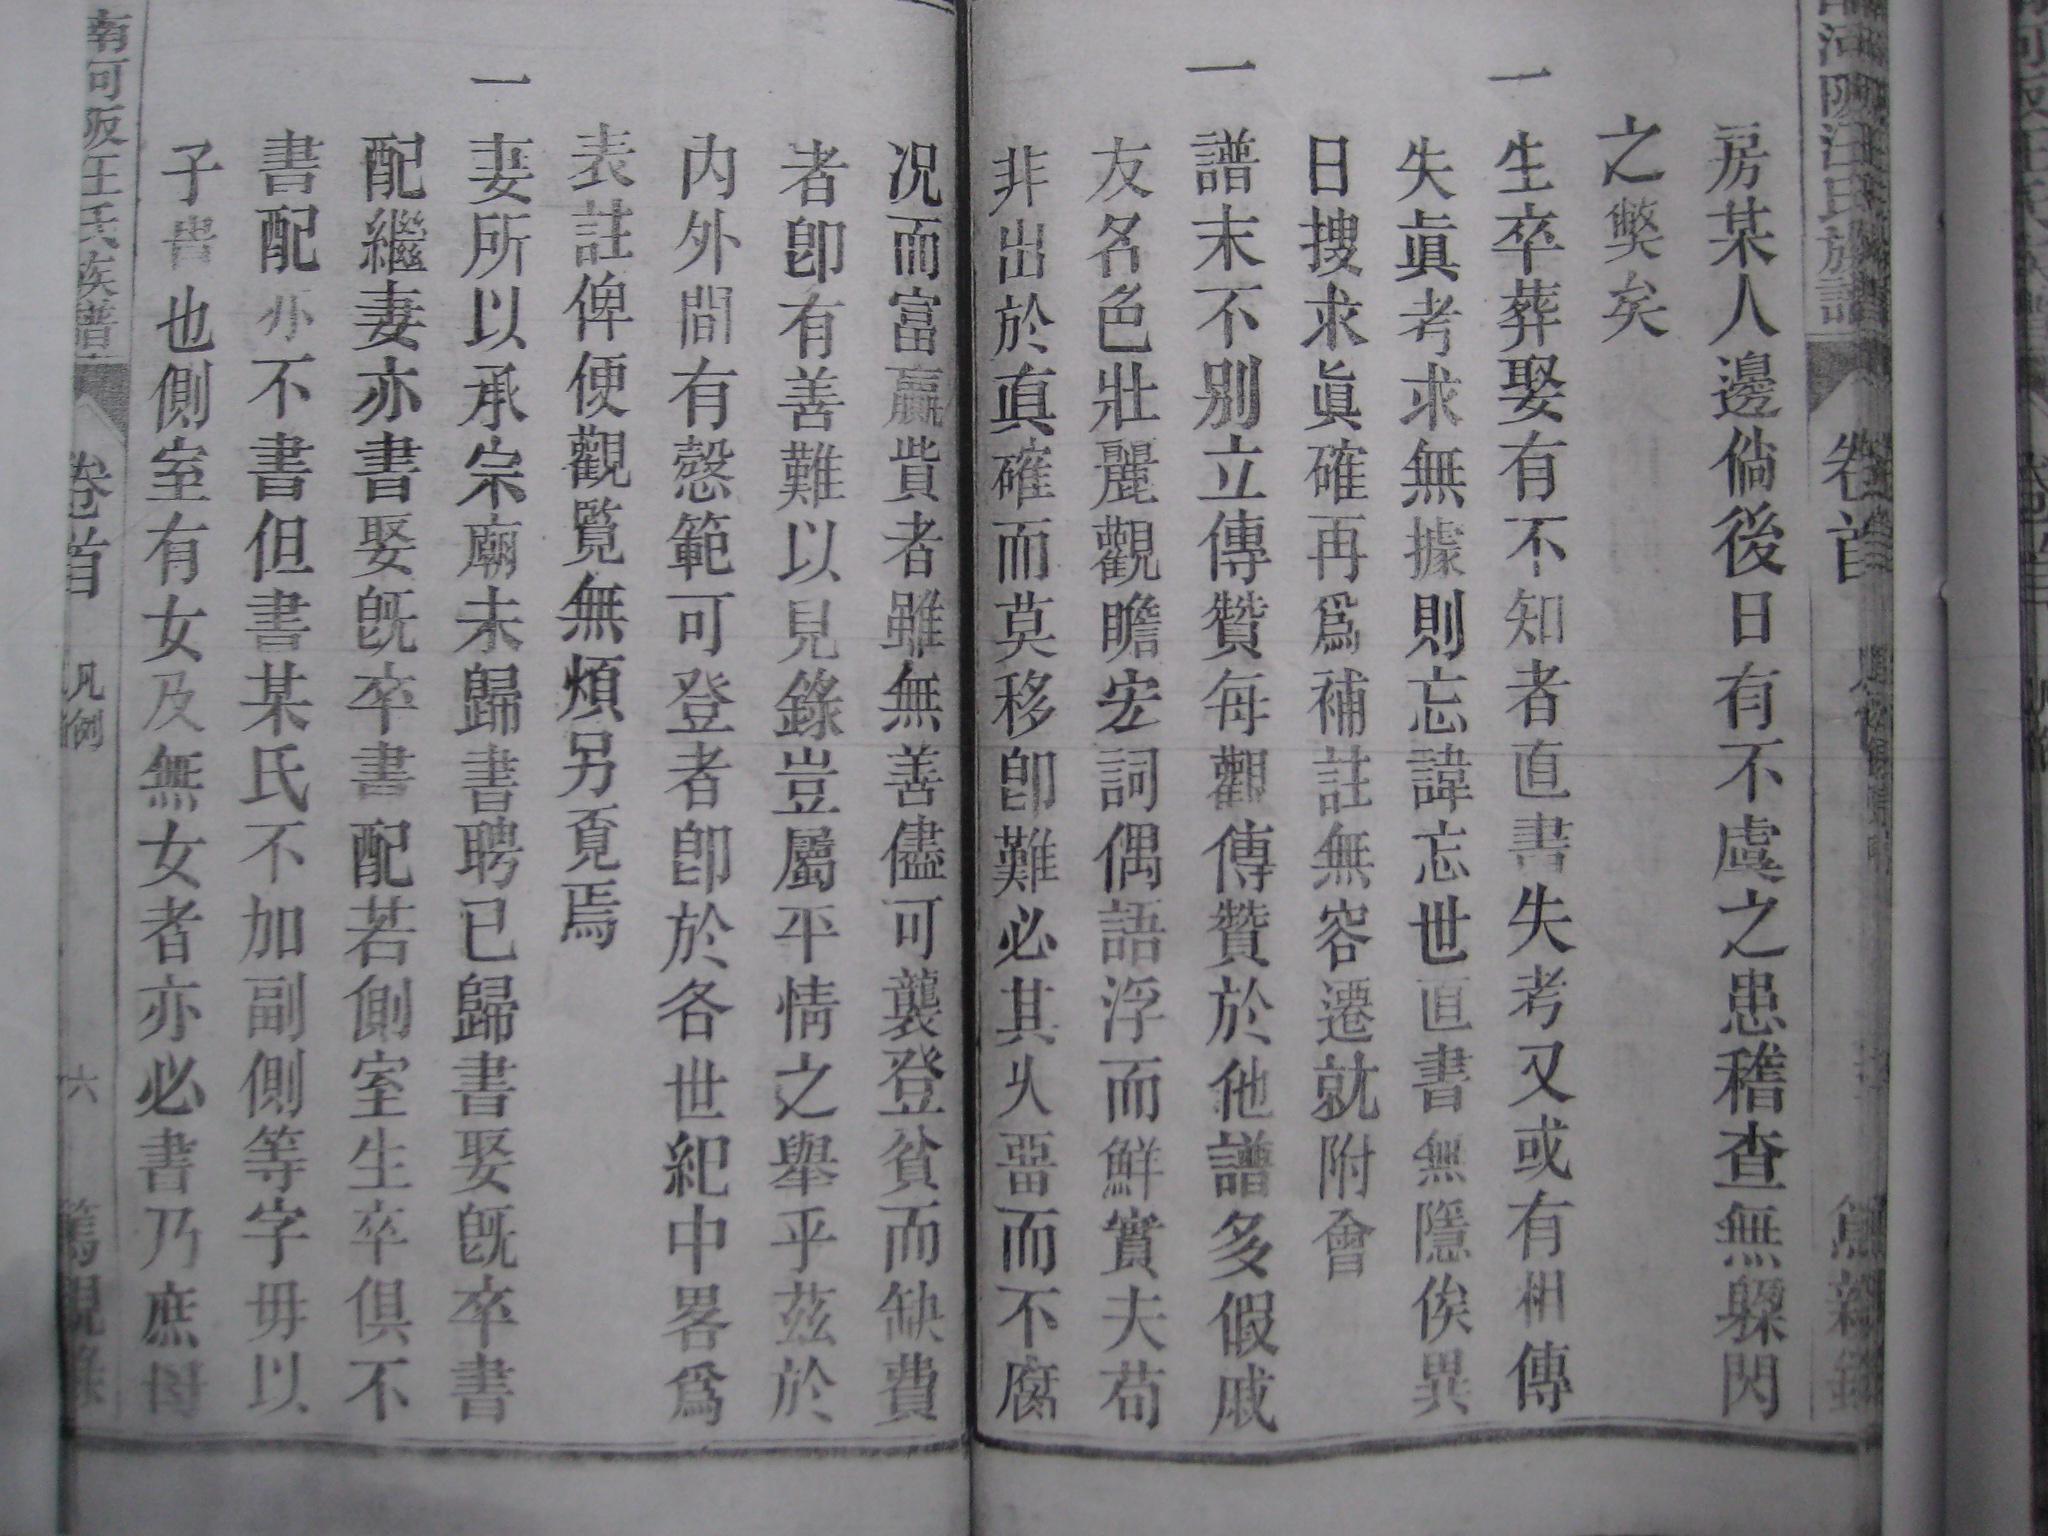 房某人邊倘後日有不虞之患稽查無躱閃
之獘矣
一
生卒葬娶有不知者直書失考又或有相傳
失眞考求無據則忘諱忘世直書無隱俟異
日搜求眞確再爲補註無容遷就附會
一
譜末不别立傳贊每觀傳贊於他譜多假戚
友名色壯麗觀瞻宏詞偶語浮而鮮實夫苟
非出於眞確而莫移卽難必其乆畱而不腐
况而富贏貲者雖無善儘可襲登貧而缺費
者卽有善難以見錄豈屬平情之舉乎茲於
内外間有慤範可登者卽於各世紀中畧爲
表註俾便觀覽無煩另覔焉
一
妻所以承宗廟未歸書聘已歸書娶旣卒書
配繼妻亦書娶旣卒書配若側室生卒俱不
書配亦不書但書某氏不加副側等字毋以
子貴也側室有女及無女者亦必書乃庶母
南河阪汪氏族譜
卷首
凡例
六
篤親錄